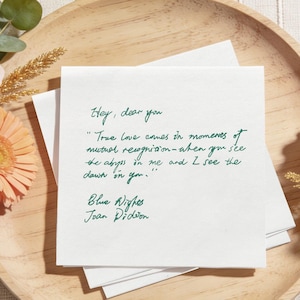 Hey, dear you
"True love comes in moments of
mutual recognition - when you see
the abyss in me and I see the
dawn in you."
Blue Nights
Joan Didion